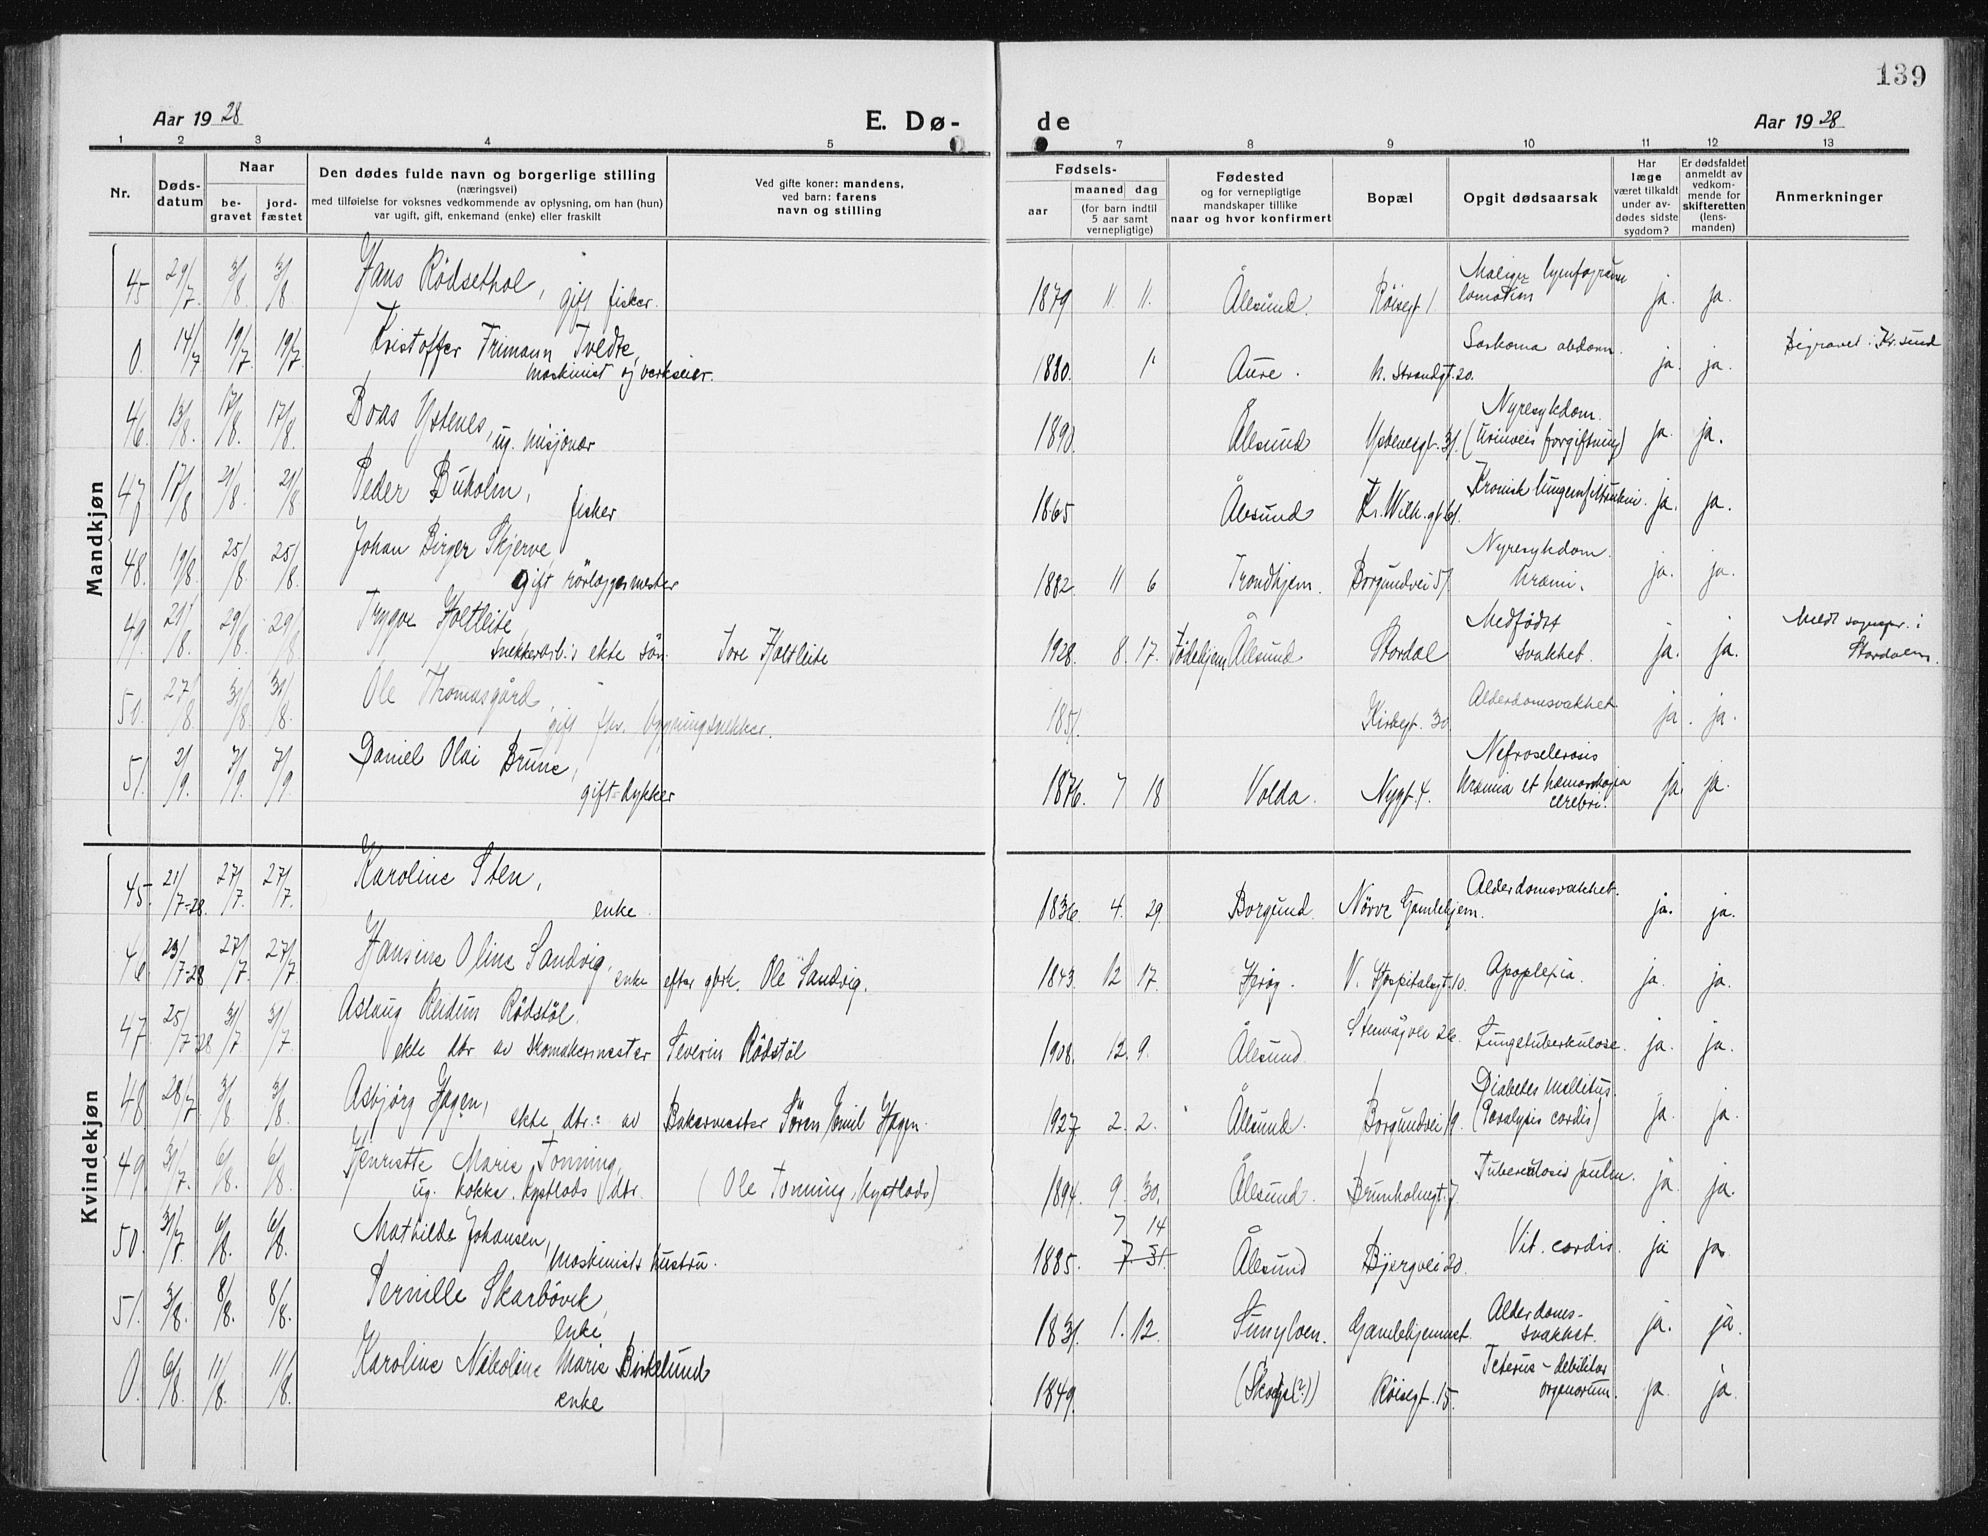 139
Aar 1928 E. Dø- de Aar 1928
1 2 3 4 5 7 8 9 10 11 12 13
Nr. Døds-datum Naar be-gravet jord-fæstet Den dødes fulde navn og borgerlige stilling (næringsvei) med tilføielse for voksnes vedkommende av oplysning, om han (hun) var ugift, gift, enkemand (enke) eller fraskilt Ved gifte koner: mandens, ved barn: farens navn og stilling Fødsels- aar maaned dag (for barn indtil 5 aar samt vernepligtige) Fødested og for vernepligtige mandskaper tillike naar og hvor konfirmert Bopæl Opgit dødsaarsak Har læge været tilkaldt under av-dødes sidste sygdom? Er dødsfaldet anmeldt av vedkom-mende for skifteretten (lens-manden) Anmerkninger
Mandkjøn
45 29/7 3/8 3/8 Hans Rödsethol, gift fisker. 1879 11. 11. Ålesund. Röisegt 1 Malign ja. ja.
0. 14/7 19/7 19/7 Kristoffer Frimann Tvedte, maskinist og verkseier. 1880. 1. Aure. N. Strandgt. 20. Sarkoma abdom. ja. ja. Begravet i Kr.sund
46. 13/8. 17/8. 17/8. Boas Ystenes, ug. misjonær 1890. Ålesund Ystenesgt. 31. Nyresykdom. (Urinveis forgiftning) ja. ja.
47 17/8 21/8. 21/8 Peder Buholm, fisker 1865 Ålesund Kr. Wilh. gt 61. Kronisk ja. ja.
48. 19/8. 25/8 25/8. Johan Birger Skjerve, gift rörleggermester 1882. 11 6 Trondhjem. Borgundvei 51. Nyresykdom. Uræmi. ja. ja.
49. 21/8. 29/8 29/8 Trygve Holtleite, snekkerarb.s ekte sön. Tore Holtleite 1928. 8. 17. Födehjem Ålesund Stordal Medfödt svakhet. ja. ja. Meldt sognepr. i Stordalen.
50. 27/8 31/8. 31/8. Ole Thomasgård, gift fhv. bygningsnekker. 1851. Kirkegt. 30 Alderdomsvakhet ja. ja.
51. 2/9. 7/9. 7/9 Daniel Olai Brune, gift dykker 1876. 7 18 Volda. Nygt. 4. Nefroselerosis Uræmia et hæmorrhagia cerebri. ja. ja.
Kvindekjøn
45. 21/7-28. 27/7. 27/7. Karoline Sten, enke 1836. 4. 29. Borgund Nörve Gamlehjem. Alderdomsvakhet. ja. ja.
46 23/7-28 27/7 27/7 Hansine Oline Sandvig, enke efter Ole Sandvig. 1843. 12 17. Heröy. V. Hospitalsgt. 10. Apoplexia. ja. ja.
47. 25/7-28 31/7 31/7. Aslaug Reidun Rödstöl. ekte dtr av skomakermester Severin Rödstöl 1908. 12. 9. Ålesund. Stenvågvei 26. Lungetuberkulose. ja. ja.
48. 28/7 3/8 3/8. Asbjørg Hagen, ekte dtr.: av Bakermester Sören Emil Hagen. 1927 2. 2. Ålesund. Borgundvei 19. Diabetes mellitus. (Paralysis cordis) ja. ja.
49. 31/7. 6/8. 6/8. Henriette Marie Tonning, ug. kokke. kystlods dtr. (Ole Tonning, kystlods) 1894. 9. 30. Ålesund. Brunholmgt. 7. Tuberculosis pulm. ja. ja.
50. 31/7 6/8. 6/8. Mathilde Johansen, Maskinists hustru. 1885. 7 14 7. 31. Ålesund Bjergvei 20. Vit. cordis. ja ja.
51. 3/8. 8/8. 8/8. Pernille Skarbövik, enke 1831. 1. 12. Sunylven. Gamlehjemmet. Alderdoms-svakhet. ja. ja.
0. 6/8. 11/8. 11/8. Karoline Nikoline Marie Birkelund enke 1849. (Skodje(?)) Röisegt. 15. debilitas organorum. ja. ja.